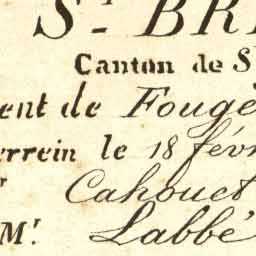 St BRI
Canton de S
ent de Fougè
errein le 18 févr
r Cahouet
Mr. Labbé